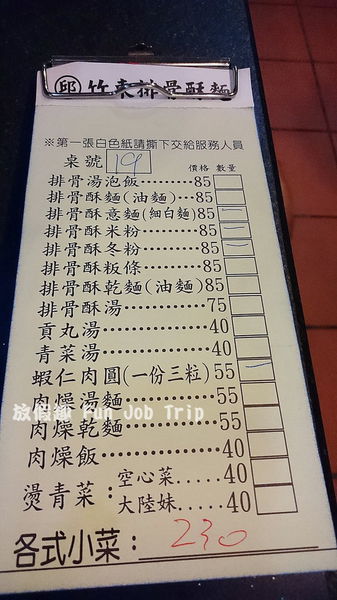 邱 竹東排骨酥麵
※第一張白色紙請撕下交給服務人員
桌號 19 價格 數量
排骨湯泡飯……85
排骨酥麵(油麵)…85
排骨酥意麵(細白麵)85 一
排骨酥米粉……85 一
排骨酥冬粉……85 一
排骨酥粄條……85
排骨酥乾麵(油麵)85
排骨酥湯………75
貢丸湯…………40
青菜湯…………40
蝦仁肉圓(一份三粒) 55 一
肉燥湯麵………55
肉燥乾麵………55
肉燥飯…………40
燙青菜：空心菜.....40
大陸妹.....40
各式小菜：230
放假趣 Fun Job Trip